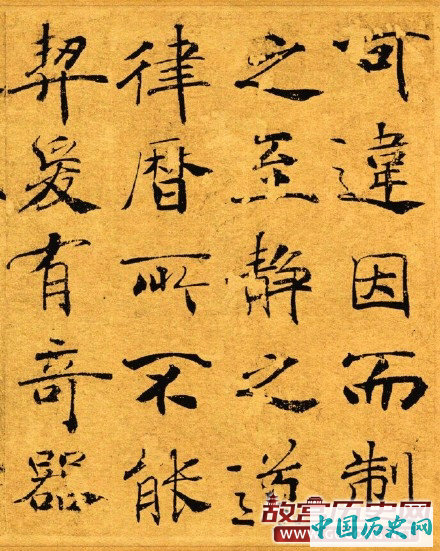 可違因而制
之至靜之道
律曆所不能
契爰有奇器
历史网
中国历史网